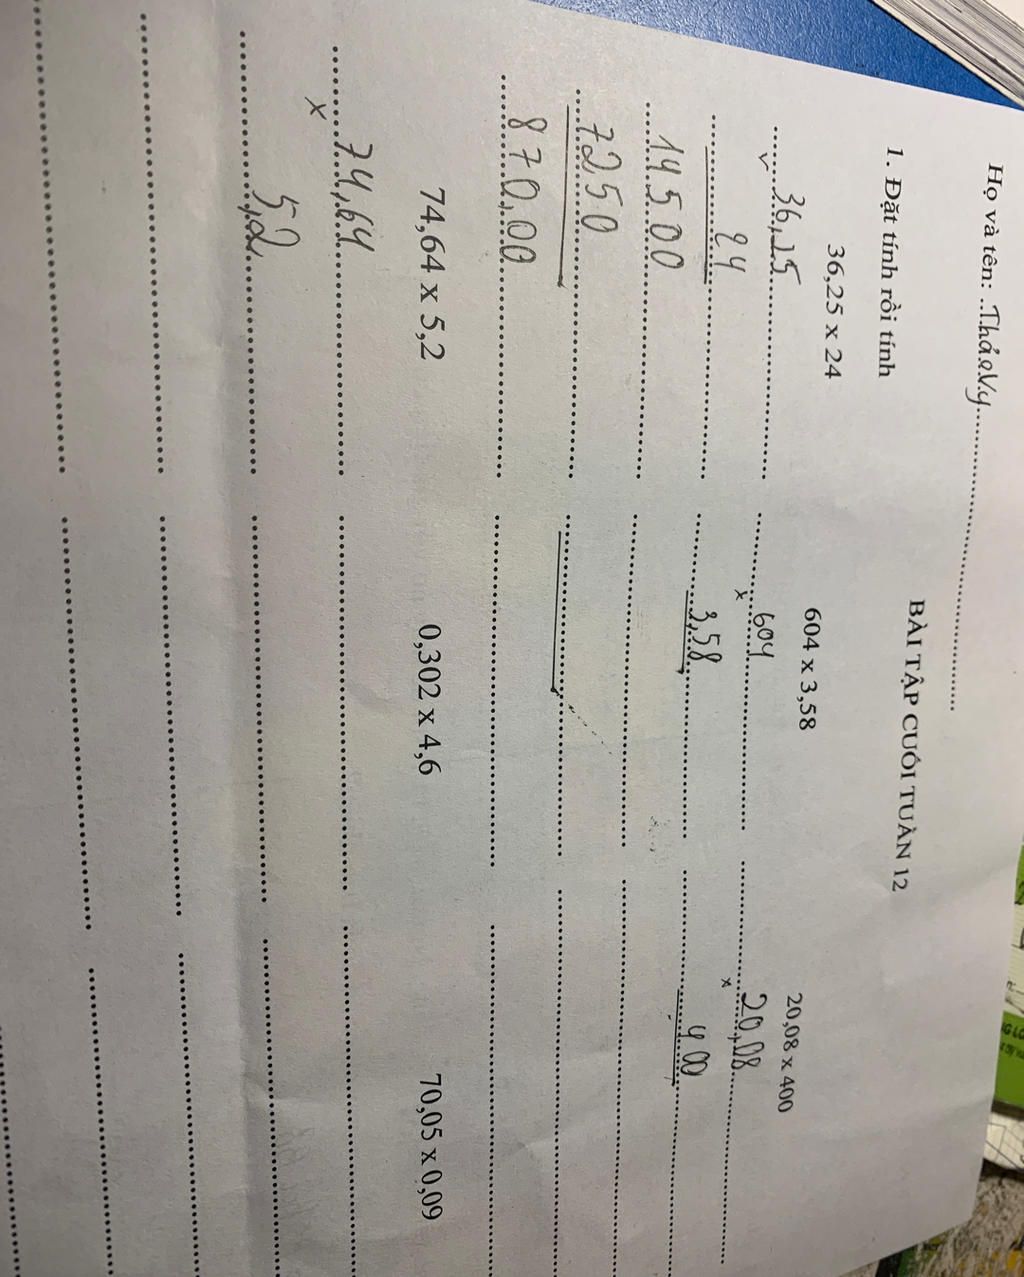 Họ và tên: Thảo Vy
BÀI TẬP CUỐI TUẦN 12
1. Đặt tính rồi tính
36,25 x 24 604 x 3,58 20,08 x 400
36,25 604 20,08
x x
24 3,58 400
14500
7250
870,00
74,64 x 5,2 0,302 x 4,6 70,05 x 0,09
74,64
x
5,2